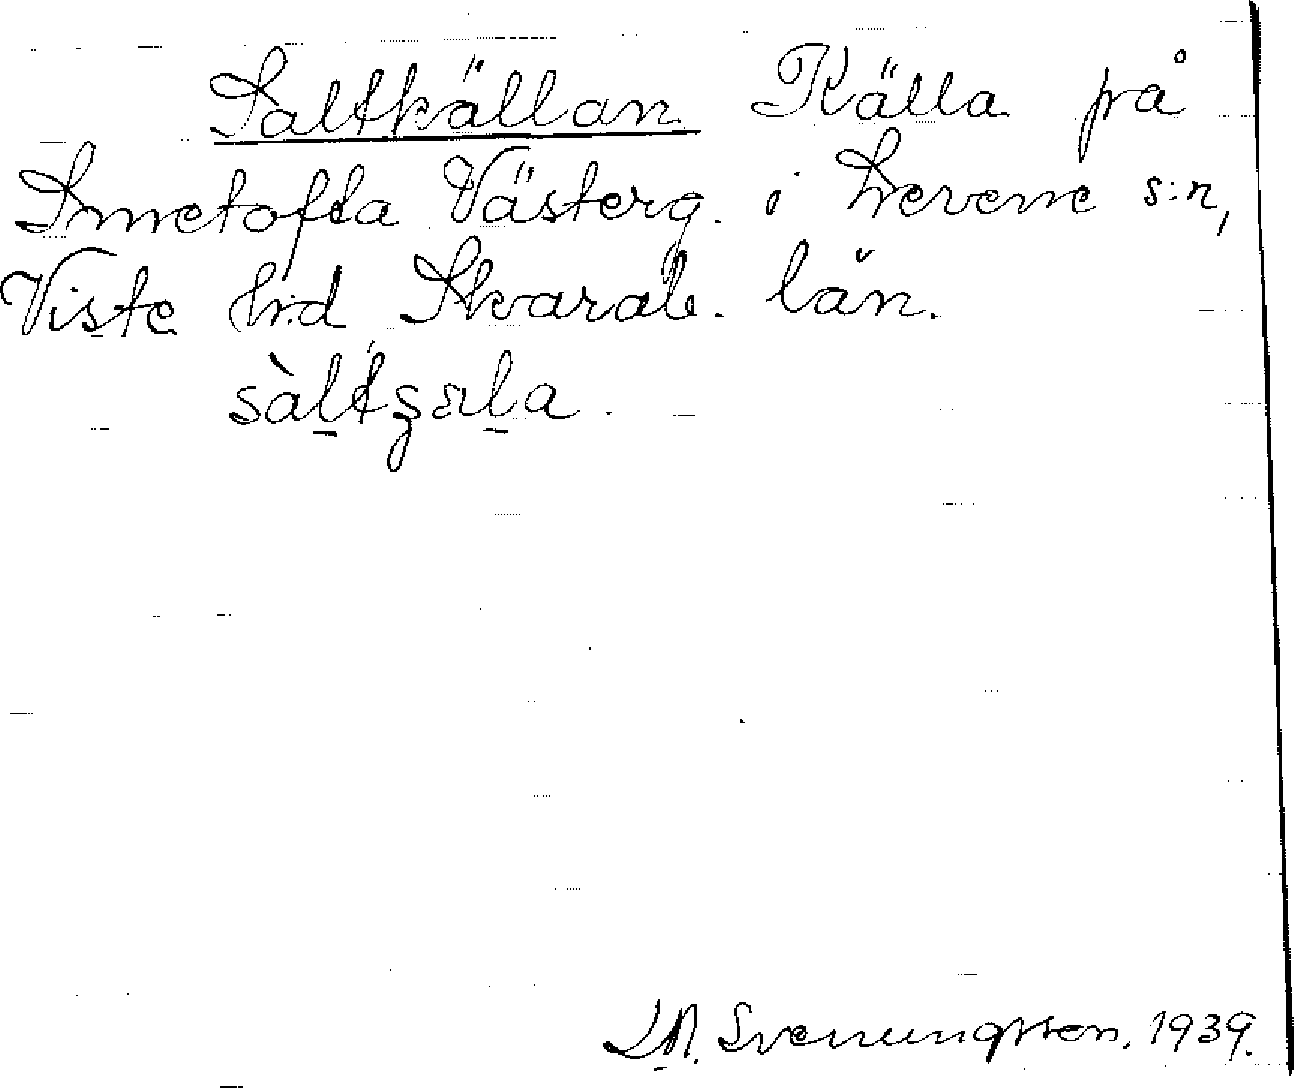 Saltkällan Källa på
Smetofta Västerg. i Levene s:n,
Viste h:d Skarab. län.
Svenungsson. 1939.